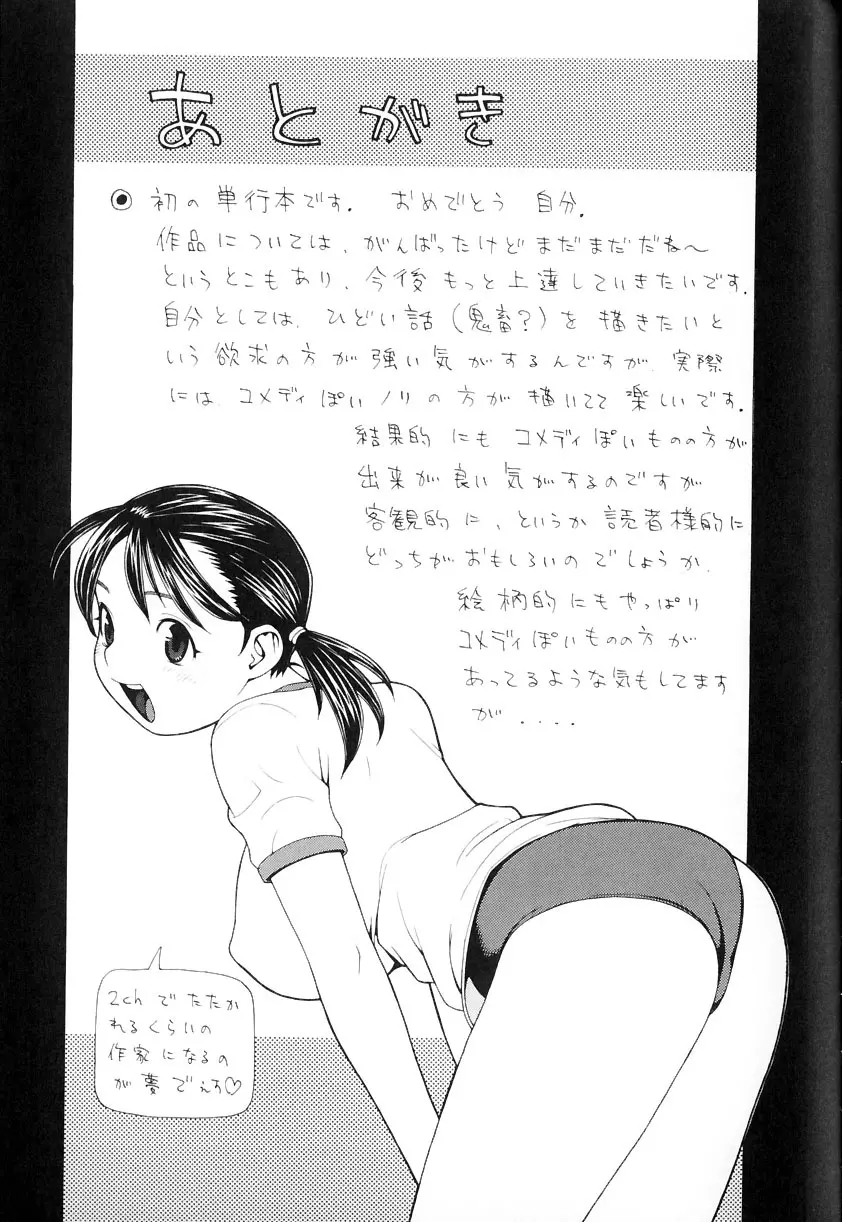 あとがき
初の単行本です. おめでとう 自分.
作品については、がんばったけどまだまだだね〜
というとこもあり、今後もっと上達していきたいです.
自分としては、ひどい話(鬼畜?)を描きたいと
いう欲求の方が強い気がするんですが、実際
には、コメディぽいノリの方が描いてて楽しいです.
結果的にもコメディぽいものの方が
出来が良い気がするのですが
客観的に、というか読者様的に
どっちがおもしろいのでしょうか.
絵柄的にもやっぱり
コメディぽいものの方が
あってるような気もしてます
が....
2chでたたか
れるくらいの
作家になるの
が夢でぇす♡